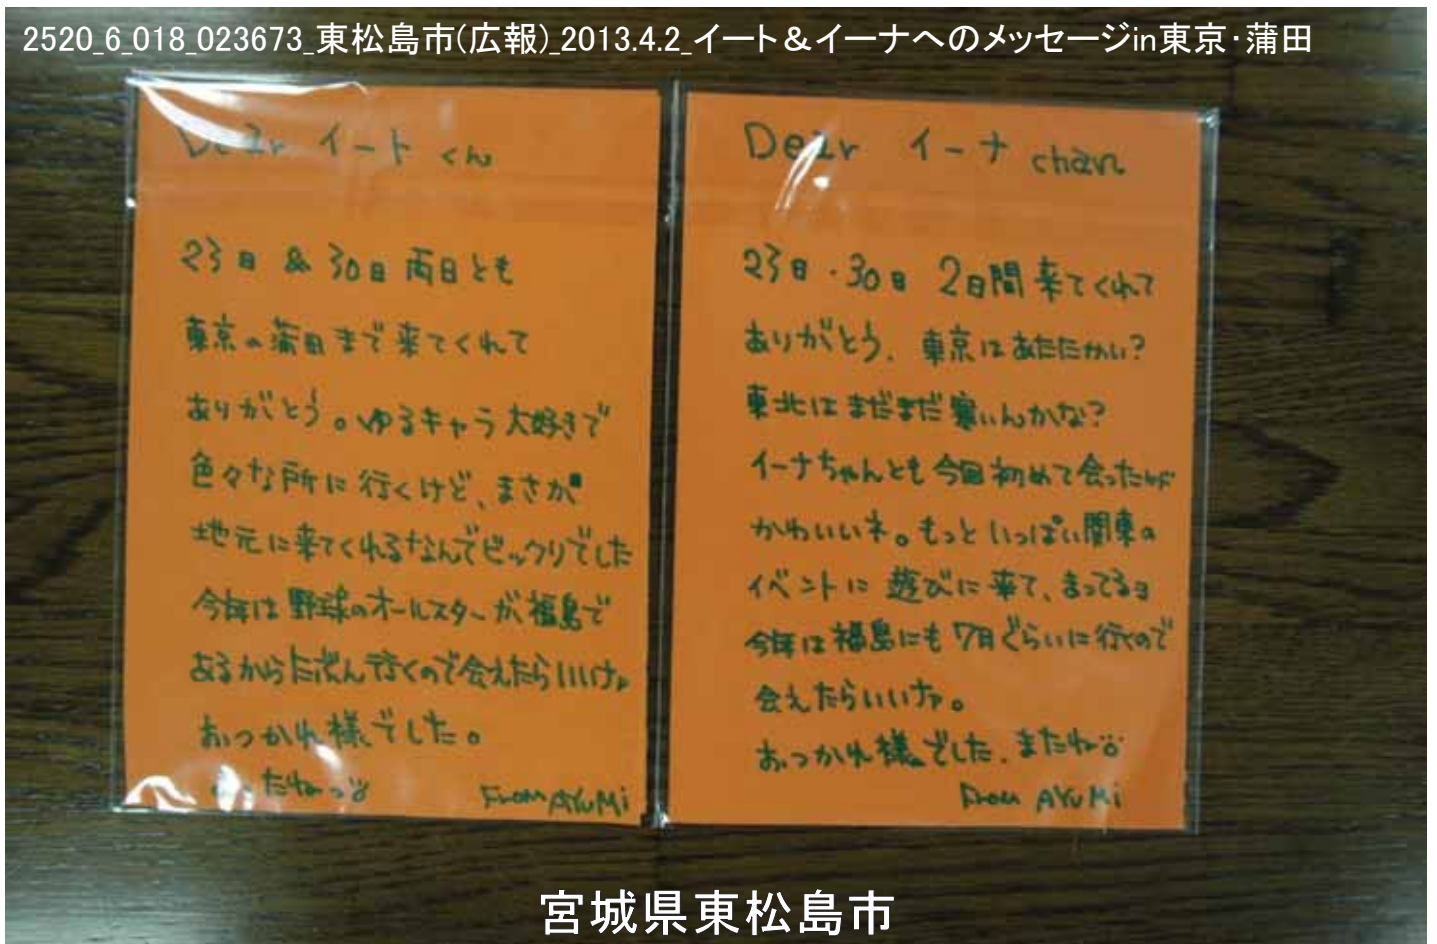 2520_6_018_023673_東松島市(広報)_2013.4.2_イート＆イーナへのメッセージin東京・蒲田
Dear イート くん
23日 & 30日 両日とも
東京の蒲田まで来てくれて
ありがとう。ゆるキャラ大好きで
色々な所に行くけど、まさか
地元に来てくれるなんてビックリでした
今年は野球のオールスターが福島で
あるからたぶん行くので会えたらいいナァ
おつかれ様でした。
だねっ
From AYUMi
Dear イーナ chan
23日・30日 2日間来てくれて
ありがとう。東京はあたたかい?
東北はまだまだ寒いんかな?
イーナちゃんとも今回初めて会ったけど
かわいいネ。もっといっぱい関東の
イベントに遊びに来て、まってるヨ
今年は福島にも7月ぐらいに行くので
会えたらいいナァ。
おつかれ様でした。またね
From AYUMi
宮城県東松島市